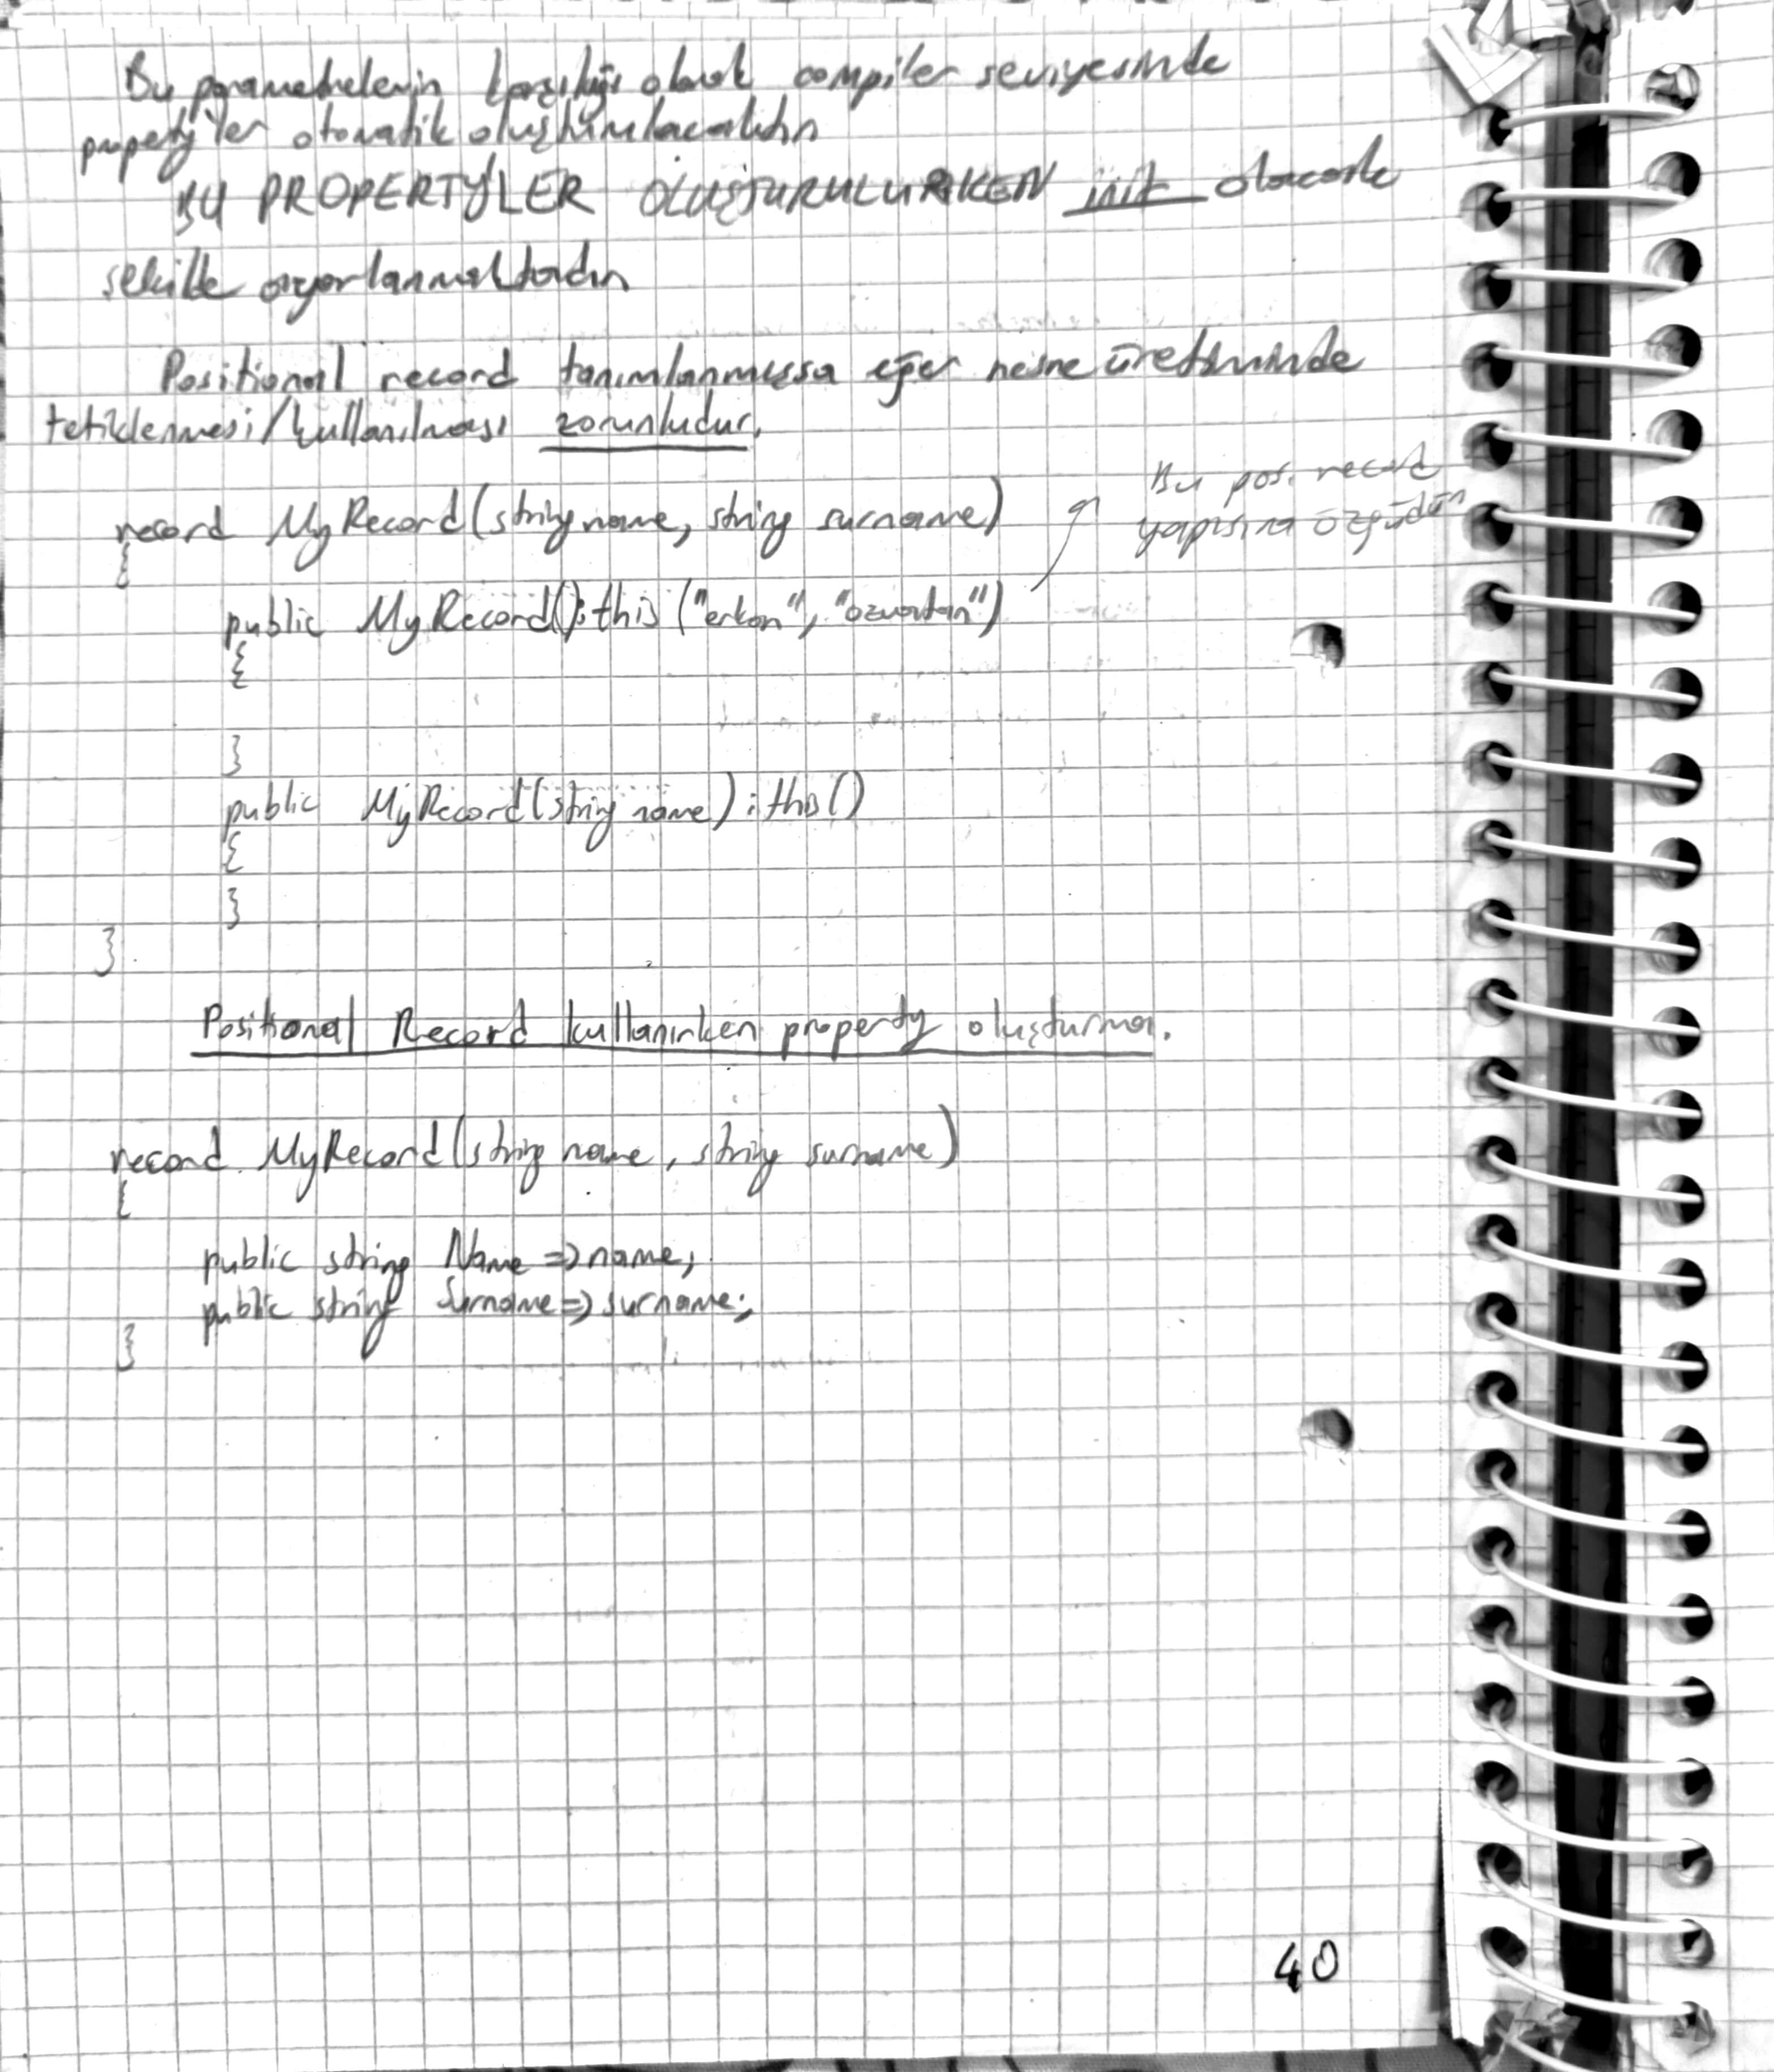 Bu parametrelerin karşılığı olarak compiler seviyesinde
property'ler otomatik oluşturulacaktır
BU PROPERTYLER OLUŞTURULURKEN init olacak
şekilde ayarlanmaktadır
Positional record tanımlanmışsa eğer nesne üretiminde
tetiklenmesi/kullanılması zorunludur.
Bu pos. record
yapısına özgüdür
record MyRecord(string name, string surname)
{
public MyRecord():this ("erkan", "ozvatan")
{
}
public MyRecord(string name):this()
{
}
}
Positional Record kullanırken property oluşturma.
record MyRecord(string name, string surname)
{
public string Name => name;
public string Surname => surname;
}
40